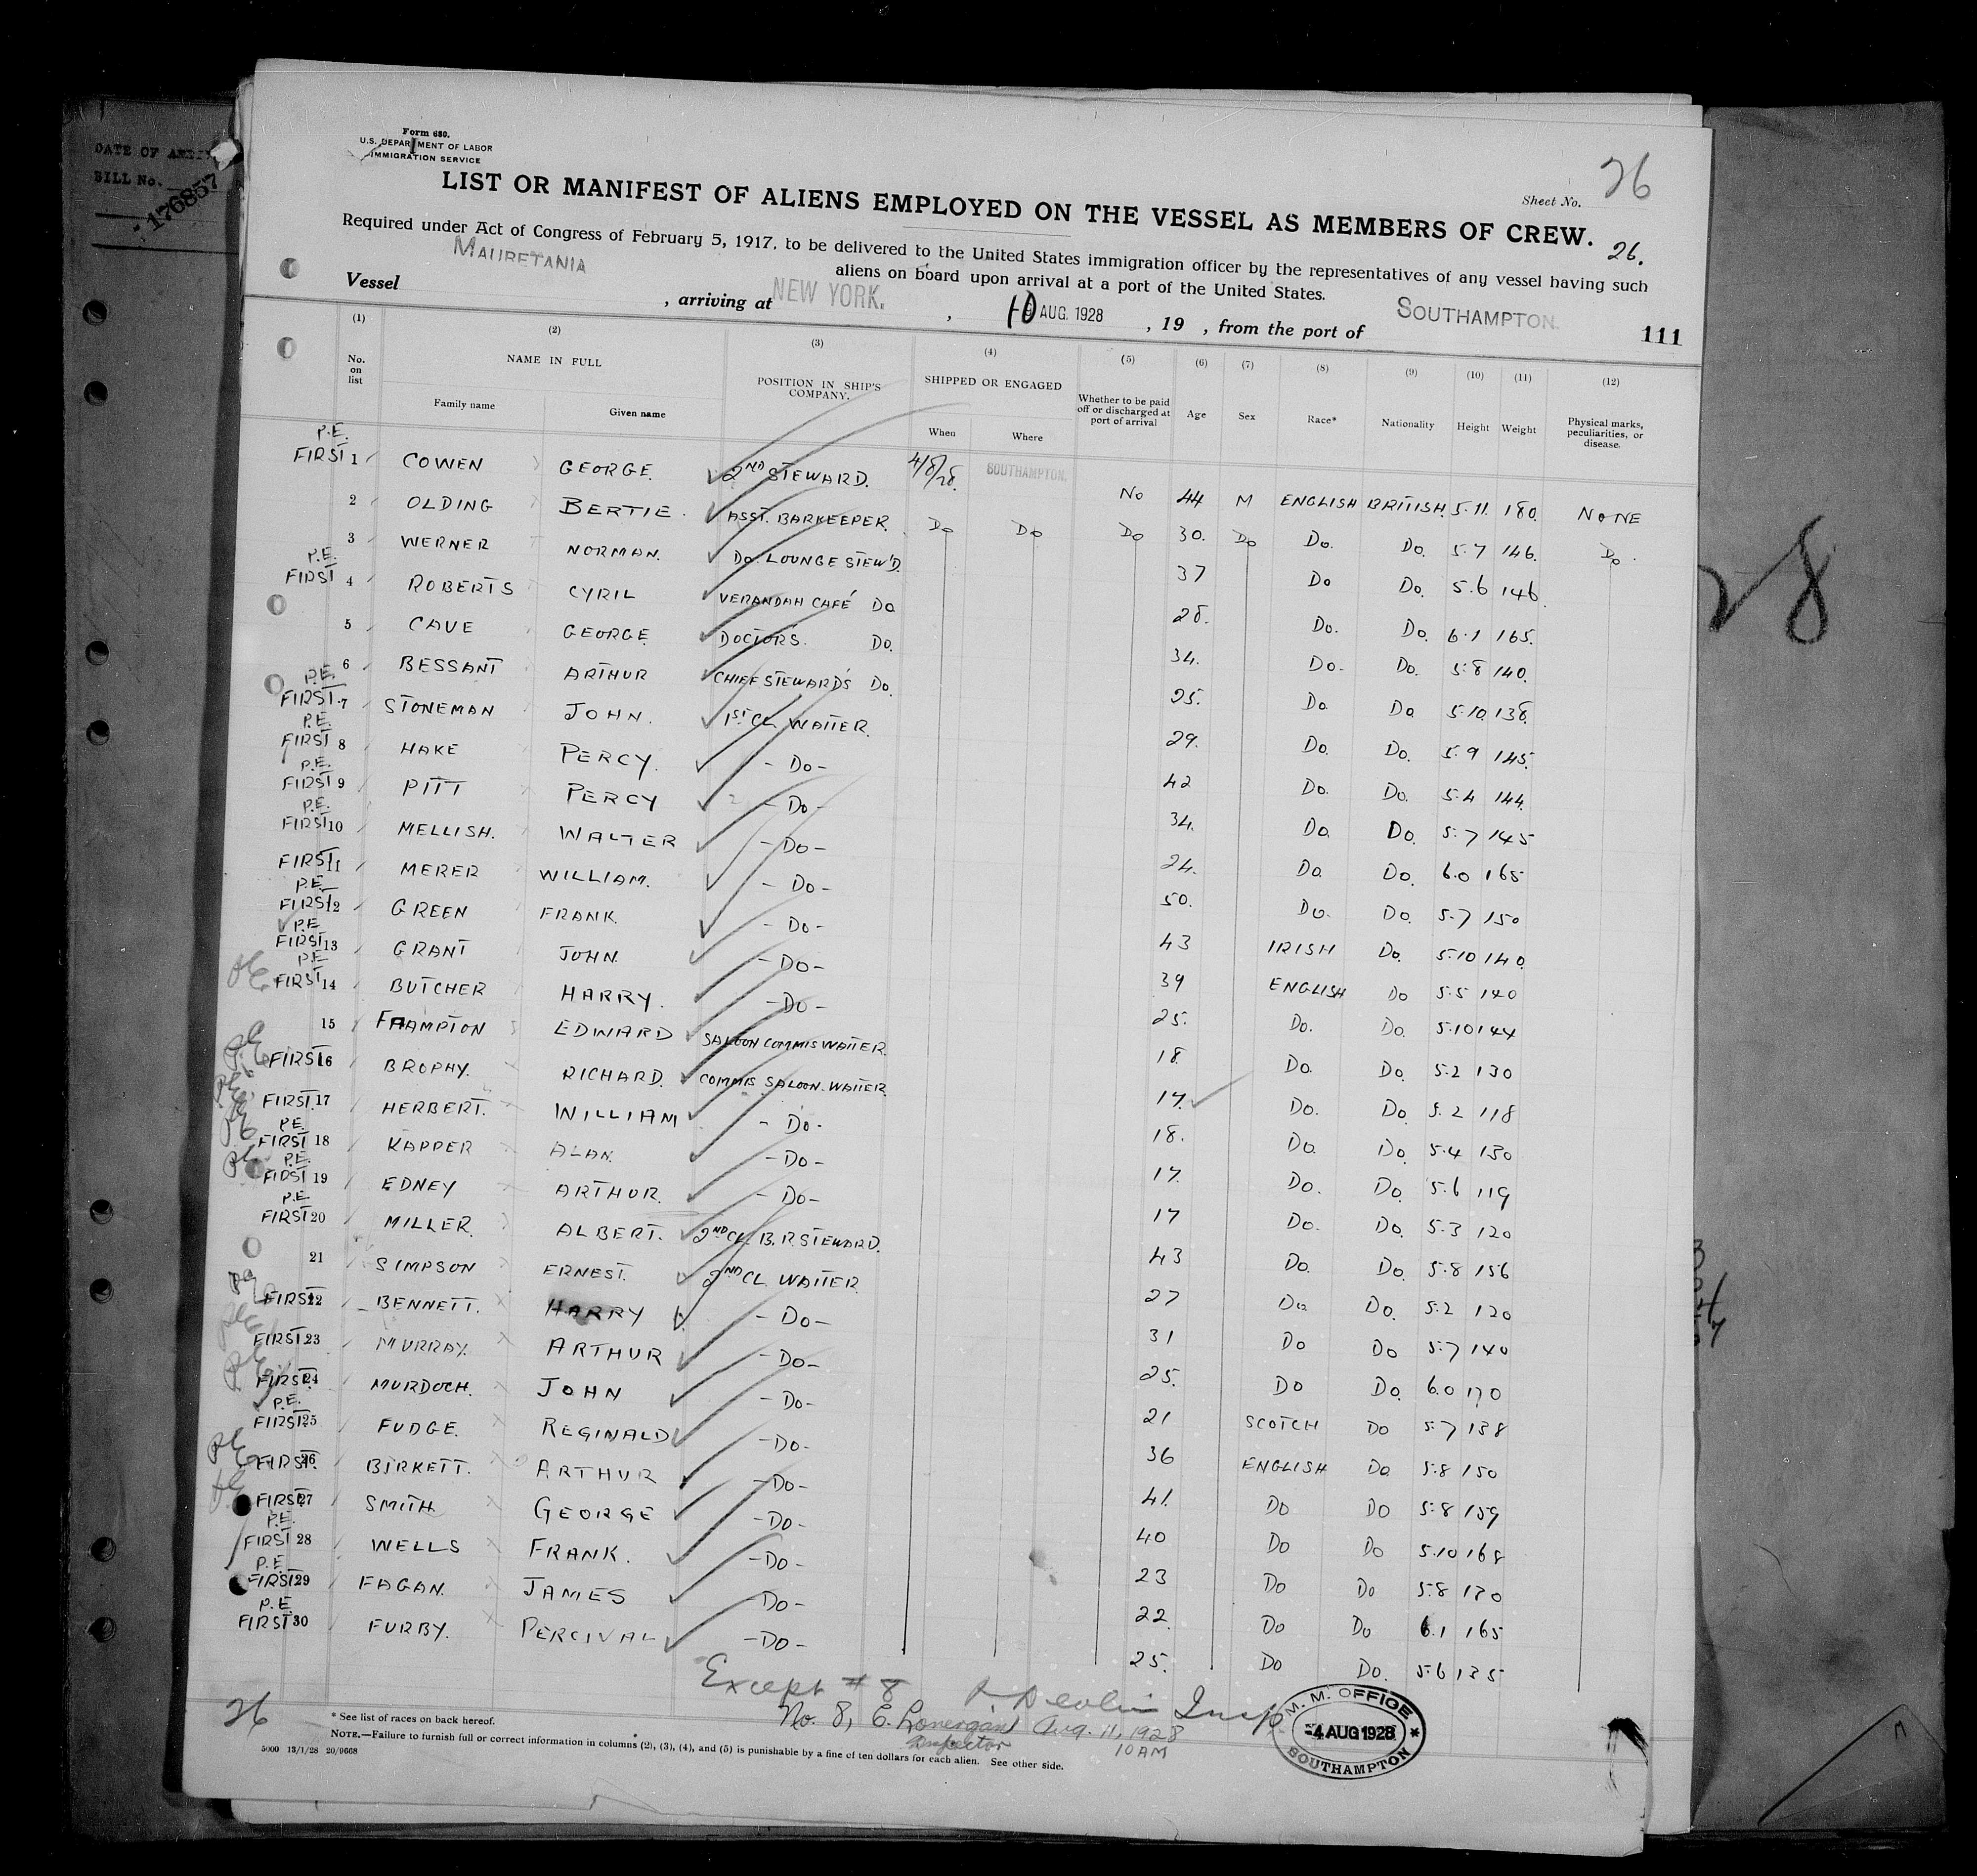 DATE OF
BILL No.
176857
Form 680.
U.S. DEPARTMENT OF LABOR
IMMIGRATION SERVICE
Sheet No. 26
LIST OR MANIFEST OF ALIENS EMPLOYED ON THE VESSEL AS MEMBERS OF CREW.
26.
Required under Act of Congress of February 5, 1917, to be delivered to the United States immigration officer by the representatives of any vessel having such
aliens on board upon arrival at a port of the United States.
Vessel MAURETANIA , arriving at NEW YORK. , 10 AUG. 1928 , 19 , from the port of SOUTHAMPTON. 111
(1) (2) (3) (4) (5) (6) (7) (8) (9) (10) (11) (12)
No. on list NAME IN FULL POSITION IN SHIP'S COMPANY. SHIPPED OR ENGAGED Whether to be paid off or discharged at port of arrival Age Sex Race* Nationality Height Weight Physical marks, peculiarities, or disease.
Family name Given name When Where
P.E. FIRST 1 COWEN GEORGE. 2ND STEWARD. 4/8/28. SOUTHAMPTON. No 44 M ENGLISH BRITISH. 5.11. 180. NONE
2 OLDING BERTIE. ASST. BARKEEPER. Do Do Do 30. Do Do. Do. 5.7 146. Do.
3 WERNER NORMAN. Do. LOUNGE STEW'D. 37 Do Do. 5.6 146.
P.E. FIRST 4 ROBERTS CYRIL VERANDAH CAFÉ Do 28. Do. Do. 6.1 165.
5 CAVE GEORGE. DOCTORS. Do. 34. Do. Do. 5.8 140.
6 BESSANT ARTHUR CHIEF STEWARDS Do. 25. Do. Do 5.10 138.
P.E. FIRST 7 STONEMAN JOHN. 1ST CL. WAITER. 29. Do. Do. 5.9 145.
P.E. FIRST 8 HAKE PERCY. - Do - 42 Do. Do. 5.4 144.
P.E. FIRST 9 PITT PERCY - Do - 34. Do. Do. 5.7 145
P.E. FIRST 10 MELLISH. WALTER - Do - 24. Do. Do. 6.0 165
FIRST 11 MERER WILLIAM. - Do - 50. Do. Do. 5.7 150
P.E. FIRST 12 GREEN FRANK. - Do - 43 IRISH Do. 5.10 140.
P.E. FIRST 13 GRANT JOHN. - Do - 39 ENGLISH Do 5.5 140
P.E. FIRST 14 BUTCHER HARRY. - Do - 25. Do. Do. 5.10 144
15 FRAMPTON EDWARD SALOON COMMIS WAITER. 18. Do. Do. 5.2 130
FIRST 16 BROPHY. RICHARD. COMMIS SALOON. WAITER. 17. Do. Do. 5.2 118
FIRST 17 HERBERT. WILLIAM - Do - 18. Do. Do. 5.4 130
P.E. FIRST 18 KAPPER ALAN. - Do - 17. Do. Do. 5.6 119
P.E. FIRST 19 EDNEY ARTHUR. - Do - 17 Do. Do. 5.3 120
P.E. FIRST 20 MILLER. ALBERT. 2ND CL. B.R. STEWARD. 43 Do. Do. 5.8 156
21 SIMPSON ERNEST. 2ND CL. WAITER. 27 Do Do. 5.2 120
FIRST 22 BENNETT. HARRY - Do - 31 Do Do 5.7 140
FIRST 23 MURRAY. ARTHUR - Do - 25. Do Do. 6.0 170
FIRST 24 MURDOCH. JOHN - Do - 21 SCOTCH Do 5.7 138
P.E. FIRST 25 FUDGE. REGINALD - Do - 36 ENGLISH Do 5.8 150
FIRST 26 BIRKETT. ARTHUR - Do - 41. Do Do 5.8 159
FIRST 27 SMITH GEORGE - Do - 40 Do Do 5.10 168
P.E. FIRST 28 WELLS FRANK. - Do - 23 Do Do 5.8 130
P.E. FIRST 29 FAGAN. JAMES - Do - 22. Do Do 6.1 165
P.E. FIRST 30 FURBY. PERCIVAL - Do - 25. Do Do. 5.6 135
Except # 8 Devlin Insp
No. 8, E. Lonergan Aug. 11, 1928
Inspector 10 AM
M. M. OFFICE
4 AUG 1928
SOUTHAMPTON
26
* See list of races on back hereof.
NOTE.—Failure to furnish full or correct information in columns (2), (3), (4), and (5) is punishable by a fine of ten dollars for each alien. See other side.
5000 13/1/28 20/9668
28